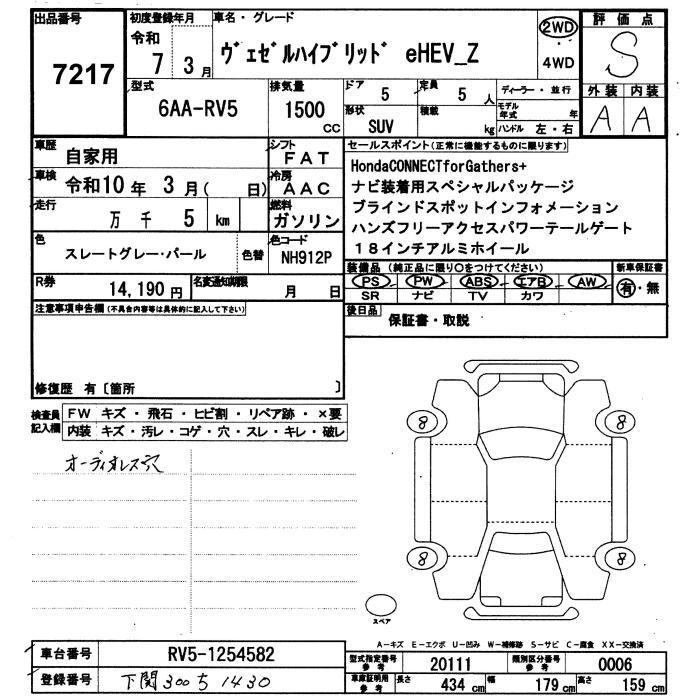 出品番号
7217
初度登録年月
令和
7 3月
車名・グレード
ヴェゼルハイブリッド eHEV_Z
2WD
4WD
評価点
S
外装 内装
A A
型式
6AA-RV5
排気量
1500
CC
ドア
5
定員
5人
形状
SUV
積載
kg
ディーラー・並行
モデル年式 年
ハンドル 左・右
車歴
自家用
シフト
FAT
車検
令和10年 3月( 日)
冷房
AAC
走行
万 千 5 km
燃料
ガソリン
色
スレートグレー・パール
色替
色コード
NH912P
R券
14,190円
名変通知期限
月 日
セールスポイント(正常に機能するものに限ります)
HondaCONNECTforGathers+
ナビ装着用スペシャルパッケージ
ブラインドスポットインフォメーション
ハンズフリーアクセスパワーテールゲート
18インチアルミホイール
装備品 (純正品に限り○をつけてください)
PS PW ABS エアB AW
SR ナビ TV カワ
新車保証書
有・無
後日品
保証書・取説
注意事項申告欄(不具合内容等は具体的に記入して下さい)
修復歴 有〔箇所 〕
検査員記入欄
FW キズ・飛石・ヒビ割・リペア跡・×要
内装 キズ・汚レ・コゲ・穴・スレ・キレ・破レ
オーディオレス穴
8 8
8 8
スペア
A−キズ E−エクボ U−凹み W−補修跡 S−サビ C−腐食 XX−交換済
車台番号
RV5-1254582
登録番号
下関300ち1430
型式指定番号 参考
20111
類別区分番号 参考
0006
車庫証明用 参考
長さ 434cm 幅 179cm 高さ 159cm